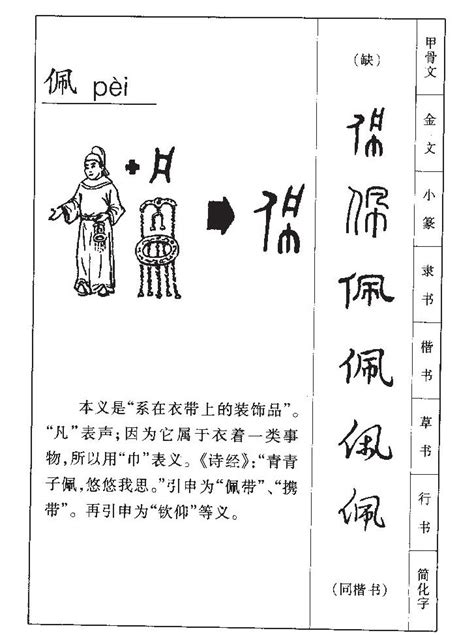 佩 pèi
本义是“系在衣带上的装饰品”。
“凡”表声；因为它属于衣着一类事
物，所以用“巾”表义。《诗经》：“青青
子佩，悠悠我思。”引申为“佩带”、“携
带”。再引申为“钦仰”等义。
(缺)
佩
佩
佩
佩
佩
佩
(同楷书)
甲骨文
金文
小篆
隶书
楷书
草书
行书
简化字